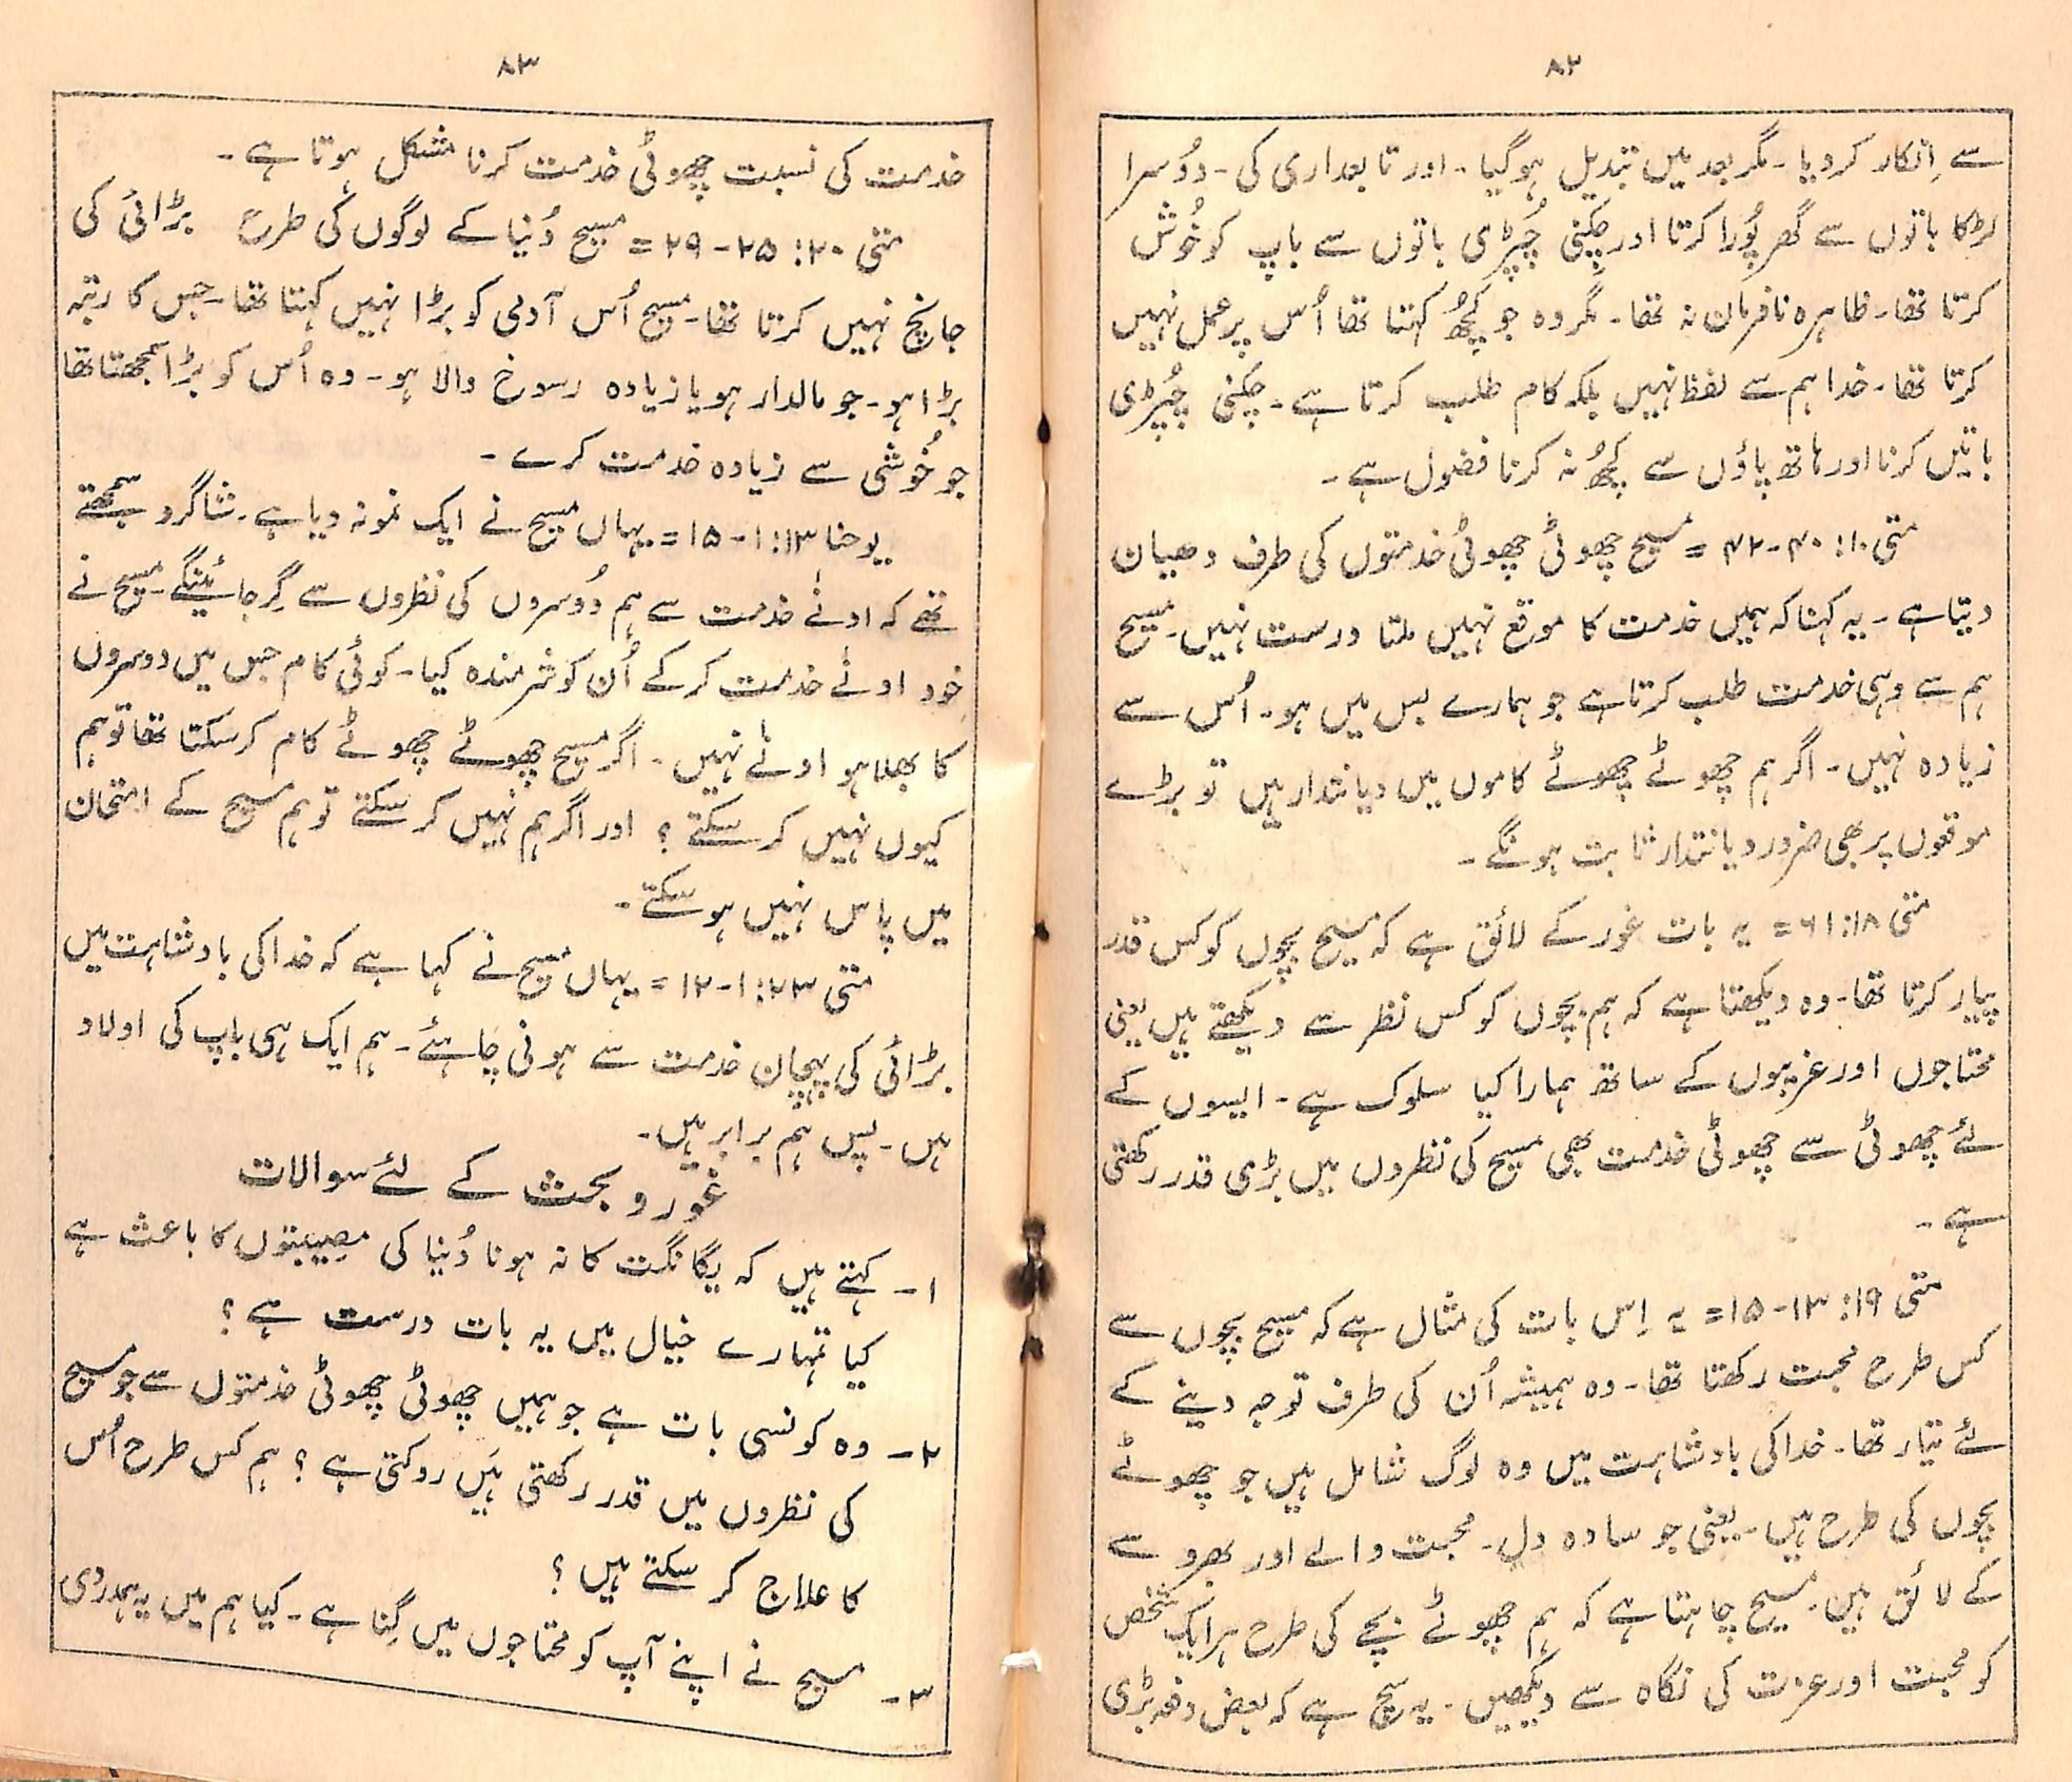 ۸۲
سے اِنکار کردیا۔ مگر بعد میں تبدیل ہوگیا۔ اور تابعداری کی۔ دُوسرا
لڑکا باتوں سے گھر پُورا کرتا اور چکنی چُپڑی باتوں سے باپ کو خُوش
کرتا تھا۔ ظاہرہ نافرمان نہ تھا۔ مگر وہ جو کچُھ کہتا تھا اُس پر عمل نہیں
کرتا تھا۔ خدا ہم سے لفظ نہیں بلکہ کام طلب کرتا ہے۔ چکنی چُپڑی
باتیں کرنا اور ہاتھ پاؤں سے کچُھ نہ کرنا فضول ہے۔
متی ۱۰: ۴۰-۴۲ = مسیح چھوٹی چھوٹی خدمتوں کی طرف دھیان
دیتا ہے۔ یہ کہنا کہ ہمیں خدمت کا موقع نہیں ملتا درست نہیں۔ مسیح
ہم سے وہی خدمت طلب کرتا ہے جو ہمارے بس میں ہو۔ اُس سے
زیادہ نہیں۔ اگر ہم چھوٹے چھوٹے کاموں میں دیانتدار ہیں تو بڑے
موقعوں پر بھی ضرور دیانتدار ثابت ہونگے۔
متی ۱۸: ۱-۶ = یہ بات غور کے لائق ہے کہ مسیح بچوں کو کس قدر
پیار کرتا تھا۔ وہ دیکھتا ہے کہ ہم بچوں کو کس نظر سے دیکھتے ہیں یعنی
محتاجوں اور غریبوں کے ساتھ ہمارا کیا سلوک ہے۔ ایسوں کے
لئے چھوٹی سے چھوٹی خدمت بھی مسیح کی نظروں میں بڑی قدر رکھتی
ہے۔
متی ۱۹: ۱۳-۱۵ = یہ اِس بات کی مثال ہے کہ مسیح بچوں سے
کس طرح محبت رکھتا تھا۔ وہ ہمیشہ اُن کی طرف توجہ دینے کے
لئے تیار تھا۔ خدا کی بادشاہت میں وہ لوگ شامل ہیں جو چھوٹے
بچوں کی طرح ہیں۔ یعنی جو سادہ دل۔ محبت والے اور بھروسے
کے لائق ہیں۔ مسیح چاہتا ہے کہ ہم چھوٹے بچے کی طرح ہر ایک شخص
کو محبت اور عزت کی نگاہ سے دیکھیں۔ یہ سچ ہے کہ بعض دفعہ بڑی
۸۳
خدمت کی نسبت چھوٹی خدمت کرنا مشکل ہوتا ہے۔
متی ۲۰: ۲۵-۲۹ = مسیح دُنیا کے لوگوں کی طرح بڑائی کی
جانچ نہیں کرتا تھا۔ مسیح اُس آدمی کو بڑا نہیں کہتا تھا۔ جس کا رتبہ
بڑا ہو۔ جو مالدار ہو یا زیادہ رسوخ والا ہو۔ وہ اُس کو بڑا سمجھتا تھا
جو خُوشی سے زیادہ خدمت کرے۔
یوحنا ۱۳: ۱-۱۵ = یہاں مسیح نے ایک نمونہ دیا ہے۔ شاگرد سمجھتے
تھے کہ ادنےٰ خدمت سے ہم دُوسروں کی نظروں سے گِر جائینگے۔ مسیح نے
خود ادنےٰ خدمت کر کے اُن کو شرمندہ کیا۔ کوئی کام جس میں دوسروں
کا بھلا ہو ادنےٰ نہیں۔ اگر مسیح چھوٹے چھوٹے کام کر سکتا تھا تو ہم
کیوں نہیں کر سکتے؟ اور اگر ہم نہیں کر سکتے تو ہم مسیح کے امتحان
میں پاس نہیں ہو سکتے۔
متی ۲۳: ۱-۱۲ = یہاں مسیح نے کہا ہے کہ خدا کی بادشاہت میں
بڑائی کی پہچان خدمت سے ہونی چاہئے۔ ہم ایک ہی باپ کی اولاد
ہیں۔ پس ہم برابر ہیں۔
غور و بحث کے لئے سوالات
۱- کہتے ہیں کہ یگانگت کا نہ ہونا دُنیا کی مصیبتوں کا باعث ہے
کیا تمہارے خیال میں یہ بات درست ہے؟
۲- وہ کونسی بات ہے جو ہمیں چھوٹی چھوٹی خدمتوں سے جو مسیح
کی نظروں میں قدر رکھتی ہیں روکتی ہے؟ ہم کس طرح اُس
کا علاج کر سکتے ہیں؟
۳- مسیح نے اپنے آپ کو محتاجوں میں گِنا ہے۔ کیا ہم میں یہ ہمدردی